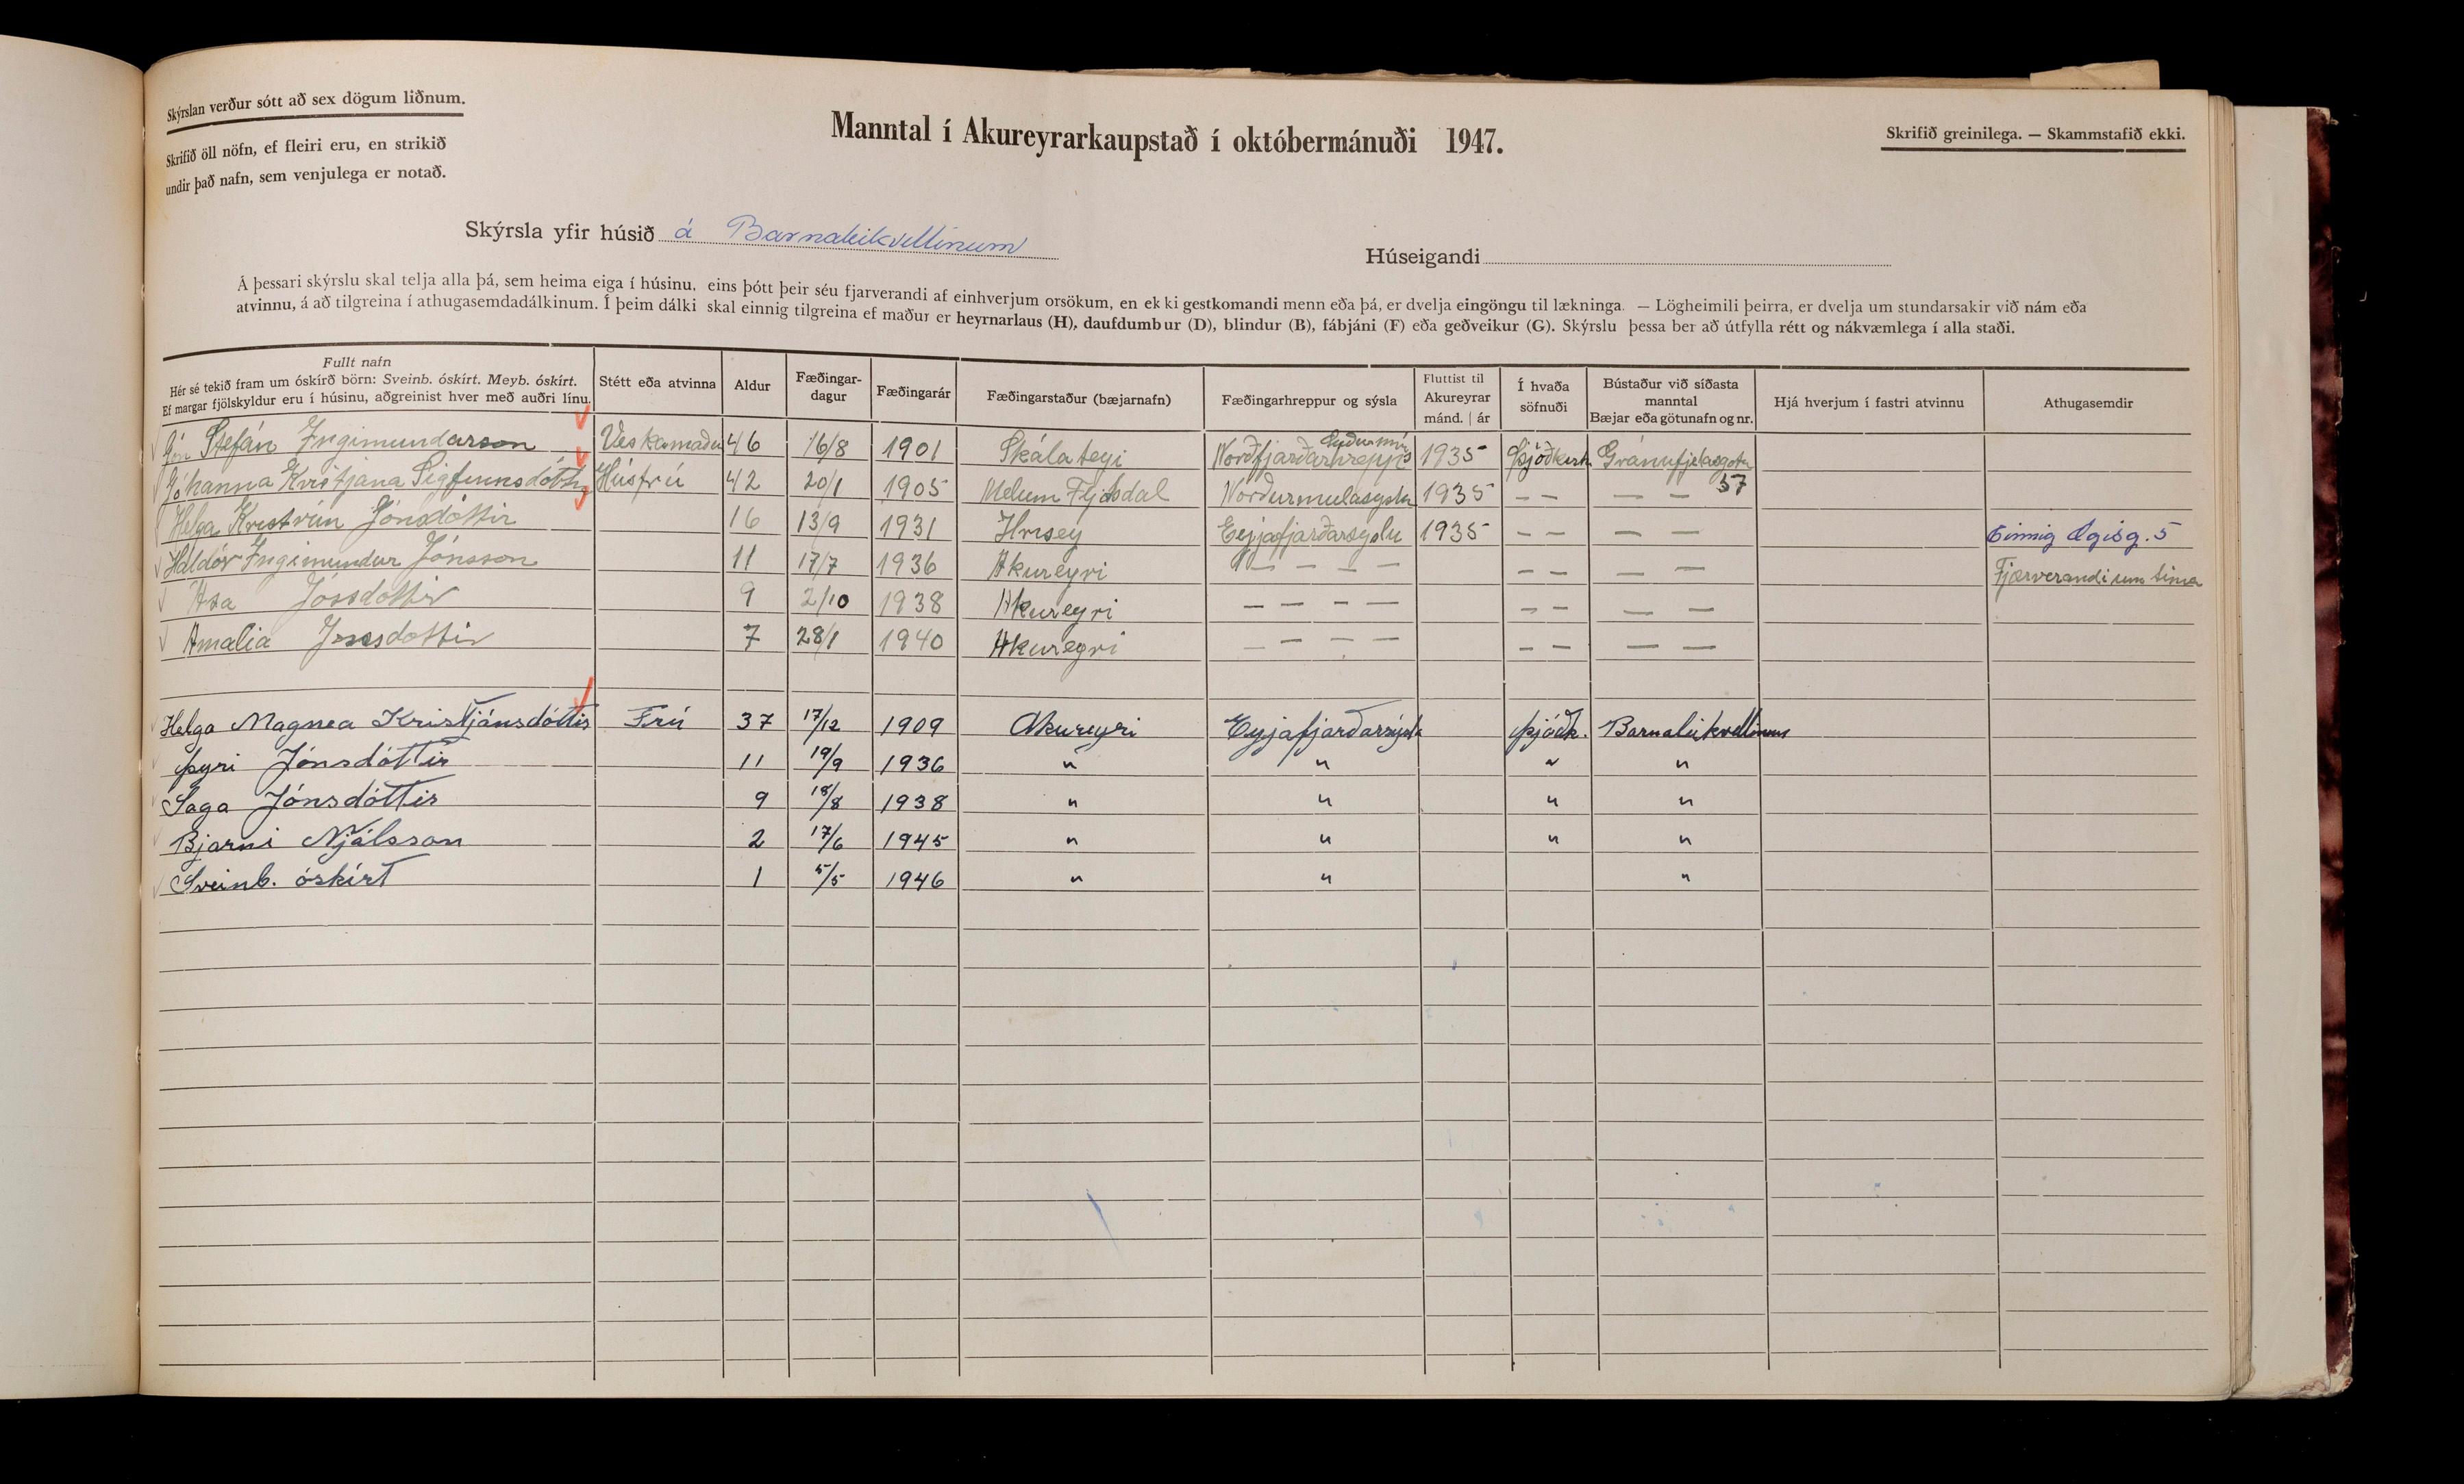 Skýrslan verður sótt að sex dögum liðnum.
Skrifið öll nöfn, ef fleiri eru, en strikið
undir það nafn, sem venjulega er notað.
Manntal í Akureyrarkaupstað í októbermánuði 1947.
Skrifið greinilega. — Skammstafið ekki.
Skýrsla yfir húsið á Barnaleikvellinum
Húseigandi
Á þessari skýrslu skal telja alla þá, sem heima eiga í húsinu, eins þótt þeir séu fjarverandi af einhverjum orsökum, en ekki gestkomandi menn eða þá, er dvelja eingöngu til lækninga. — Lögheimili þeirra, er dvelja um stundarsakir við nám eða
atvinnu, á að tilgreina í athugasemdadálkinum. Í þeim dálki skal einnig tilgreina ef maður er heyrnarlaus (H), daufdumbur (D), blindur (B), fábjáni (F) eða geðveikur (G). Skýrslu þessa ber að útfylla rétt og nákvæmlega í alla staði.
Fullt nafn
Hér sé tekið fram um óskírð börn: Sveinb. óskírt. Meyb. óskírt.
Ef margar fjölskyldur eru í húsinu, aðgreinist hver með auðri línu.
Stétt eða atvinna
Aldur
Fæðingar-
dagur
Fæðingarár
Fæðingarstaður (bæjarnafn)
Fæðingarhreppur og sýsla
Fluttist til
Akureyrar
mánd. | ár
Í hvaða
söfnuði
Bústaður við síðasta
manntal
Bæjar eða götunafn og nr.
Hjá hverjum í fastri atvinnu
Athugasemdir
Jón Stefán Ingimundarson Verkamaður 46 16/8 1901 Skálateyi Norðfjarðarhrepps Suðurmúl 1935 Þjóðkirk Gránufjelasgotu
Jóhanna Kristjana Sigfúnsdóttir Húsfrú 42 20/1 1905 Melum Fljótsdal Norðurmulasyslu 1935 – – — — 57
Helga Kristrún Jónsdóttir 16 13/9 1931 Hrisey Eyjafjarðarsyslu 1935 – – — — Einnig Ægisg. 5
Haldór Ingimundur Jónsson 11 17/7 1936 Akureyri — — — — – – — — Fjærverandi um tima
Asa Jónsdóttir 9 2/10 1938 Akureyri — — — — – – — —
Amalia Jónsdottir 7 28/1 1940 Akureyri — — — — – – — —
Helga Magnea Kristjánsdóttir Frú 37 17/12 1909 Akureyri Eyjafjarðarsýsla Þjóðk. Barnaleikvellinum
Þyri Jónsdóttir 11 19/9 1936 " " " "
Saga Jónsdóttir 9 18/8 1938 " " " "
Bjarni Njálsson 2 17/6 1945 " " " "
Sveinb. óskírt 1 5/5 1946 " " "